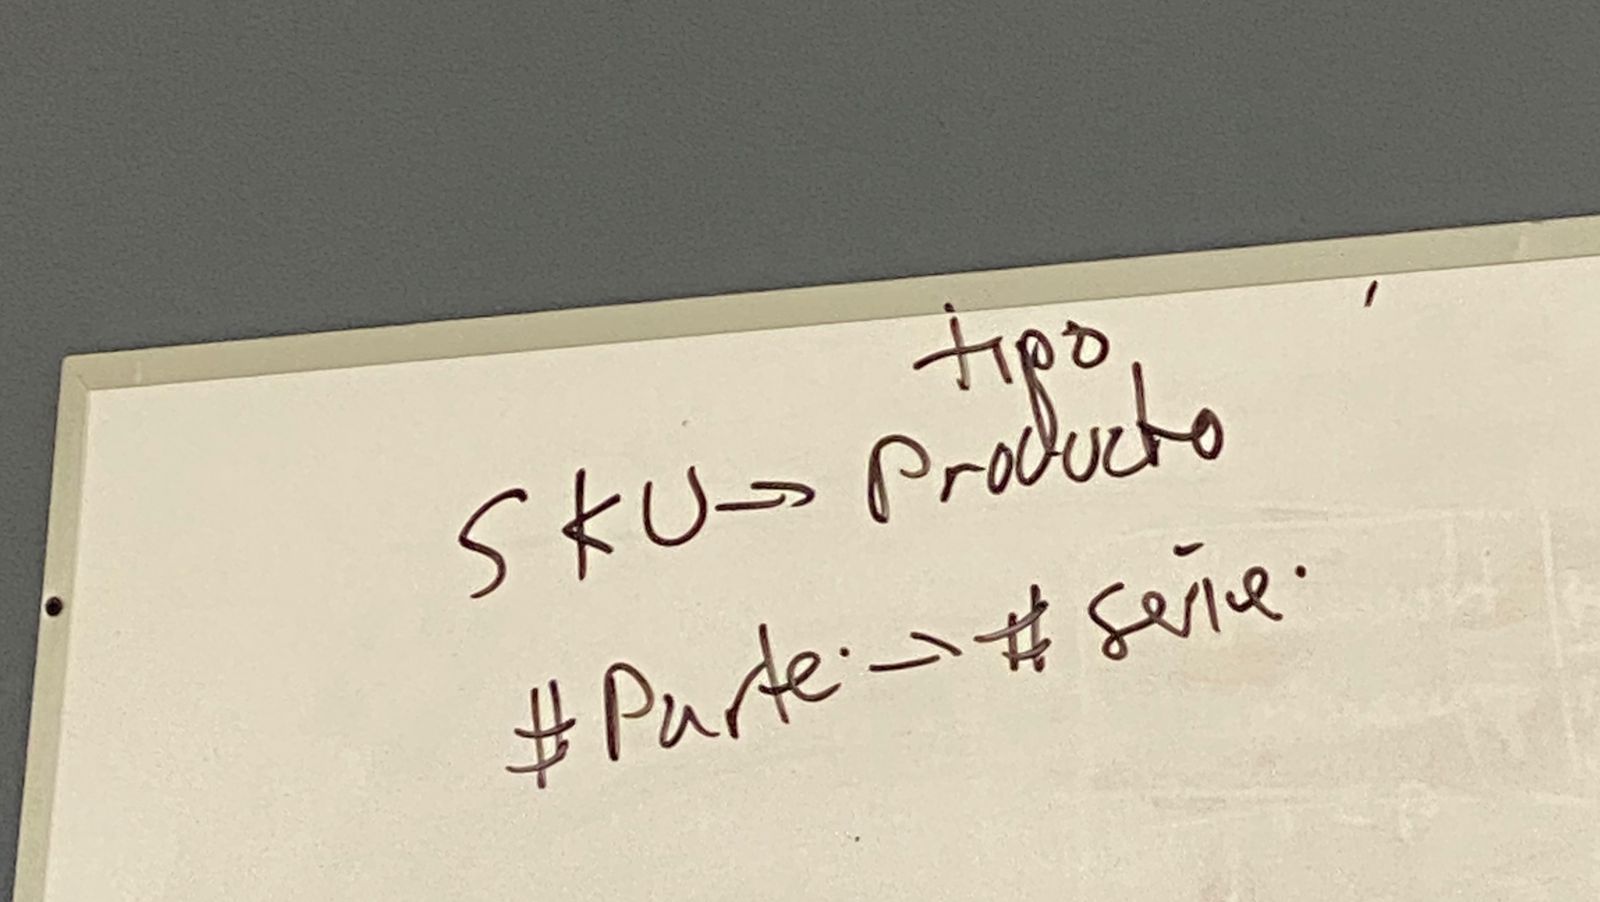 tipo
SKU → Producto
#Parte. → # serie.